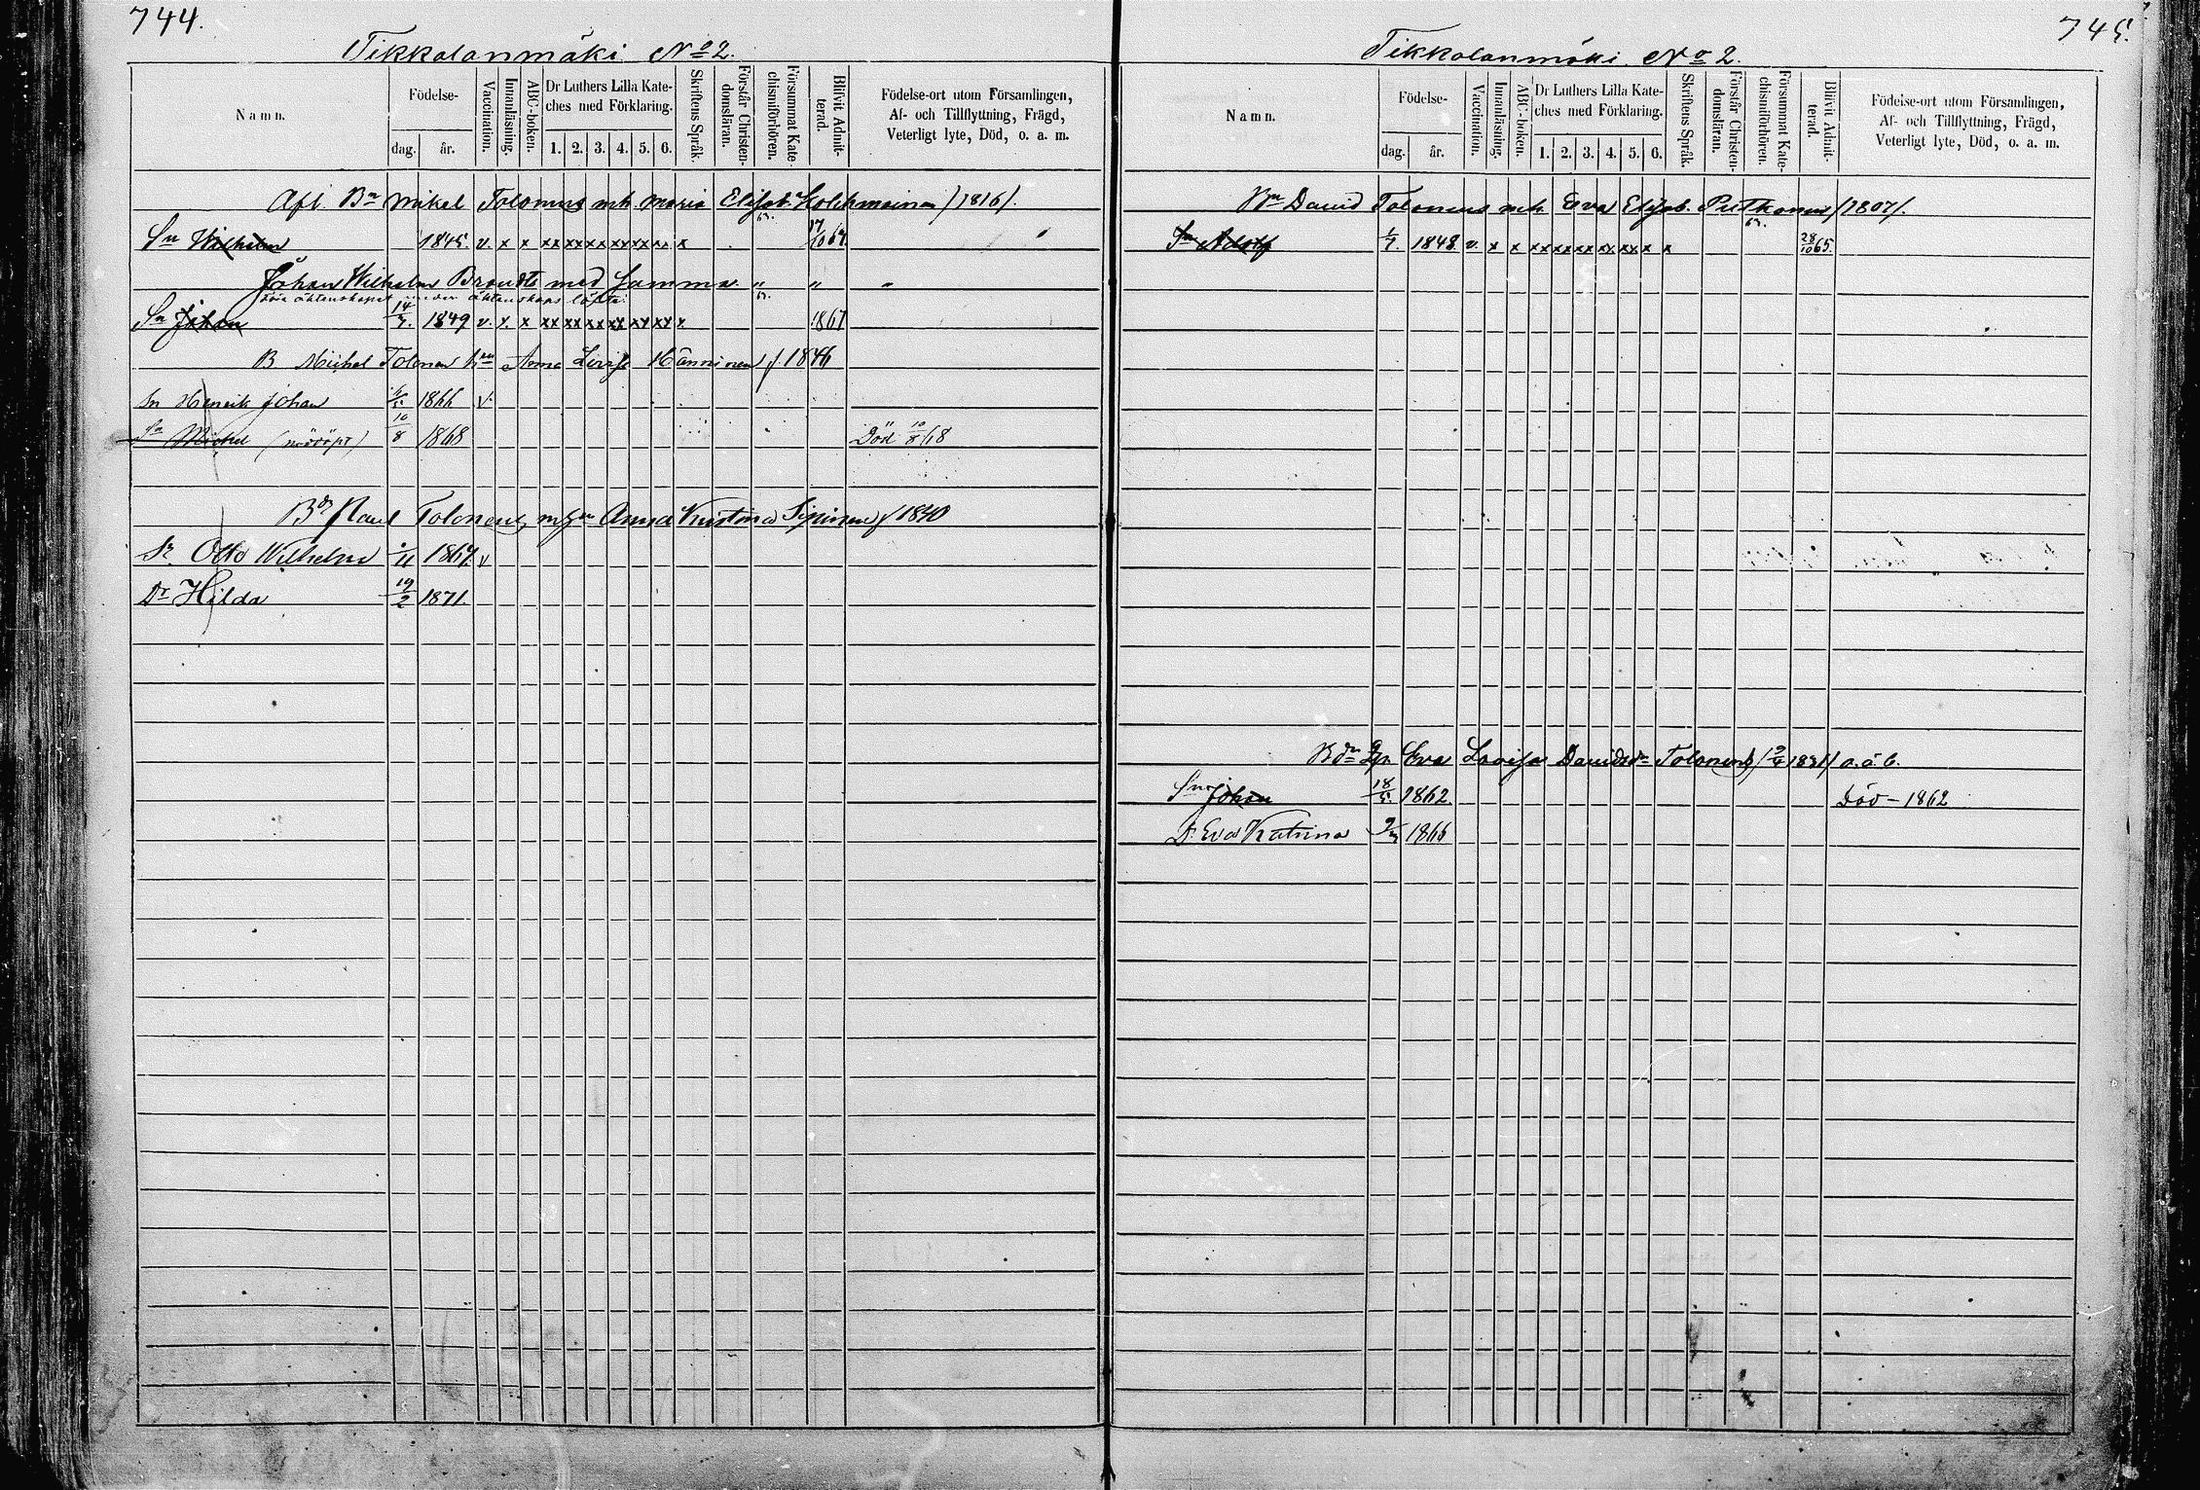 744.
Tikkalanmäki No 2.
Namn.
Födelse-
dag.
år.
Vaccination.
Innanläsning.
ABC-boken.
Dr Luthers Lilla Kate-
ches med Förklaring.
1. 2. 3. 4. 5. 6.
Skriftens Språk.
Förstår Christen-
domsläran.
Försummat Kate-
chismiförhören.
Blifvit Admit-
terad.
Födelse-ort utom Församlingen,
Af- och Tillflyttning, Frägd,
Veterligt lyte, Död, o. a. m.
Afl. Bn Mikel Tolonens m.h. Maria Elisab. Holckmainen /1816/.
Sn Wilhelm 1845. v. x x xx xx xx xx xx xx x 17/10 67.
Johan Wilhelm Brandts med Samma " " "
före äktenskapet under äktenskaps löfte:
Sn Johan 14/7. 1849 v. x. x xx xx xx xx xx xx x 1867
B Michel Tolonen hu Anna Lovisa Hänninen f. 1846
Sn Henrik Johan 1866 v.
Sn Michel (nödöpt) 10/8 1868 Död 10/8 68
Bd Paul Tolonens m. Anna Kristina Sipinen f 1840
Sn Otto Wilhelm /11 1867. v
Dr Hilda 19/2 1871.
745.
Tikkalanmäki No 2.
Namn.
Födelse-
dag.
år.
Vaccination.
Innanläsning.
ABC-boken.
Dr Luthers Lilla Kate-
ches med Förklaring.
1. 2. 3. 4. 5. 6.
Skriftens Språk.
Förstår Christen-
domsläran.
Försummat Kate-
chismiförhören.
Blifvit Admit-
terad.
Födelse-ort utom Församlingen,
Af- och Tillflyttning, Frägd,
Veterligt lyte, Död, o. a. m.
Bn David Tolonens m.h. Eva Elisab. Putkonen /1807/.
Sn Adolf 1/7. 1848 v. x x xx xx xx xx xx x x 28/10 65.
Bdn Eva Lovisa Davidsdr Tolonens 1831/ o. ä. b.
Sn Johan 18/5. 1862. Död - 1862
D. Eva Katrina 1866